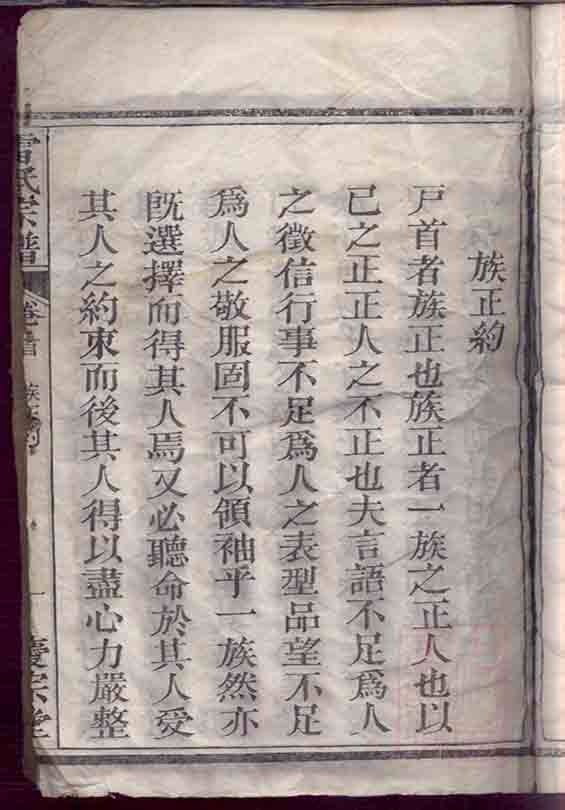 族正約
戸首者族正也族正者一族之正人也以
己之正正人之不正也夫言語不足爲人
之徵信行事不足爲人之表型品望不足
爲人之敬服固不可以領袖乎一族然亦
旣選擇而得其人焉又必聽命於其人受
其人之約束而後其人得以盡心力嚴整
雷氏宗譜
卷首
族正約
一
慶宗堂